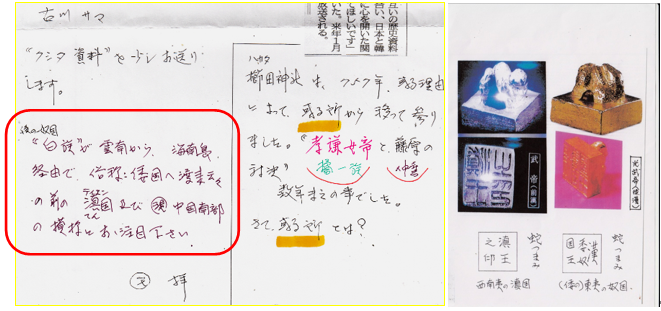 古川 サマ
"クシタ資料"を少しお送り
します。
後の奴国
"白族"が雲南から、海南島
経由で、俗称:倭国へ渡来云々
の前の滇国及び 中国南部
の模様とお注目下さい
拝
互いの歴史資料
合い、日本と韓
に心を開いた関
てほしいです」
いた。来年1月
放送される。
ハカタ
櫛田神社は、757年、或る理由
によって、或る所から移って参り
ました。"孝謙女帝と藤原の
対決" 橘一族 仲
数年までの事でした。
さて或る所とは?
武帝(前漢)
光武帝(後漢)
蛇つまみ
滇王
之印
蛇つまみ
漢
委奴
国王
西南夷の滇国
(倭の)東夷の奴国.